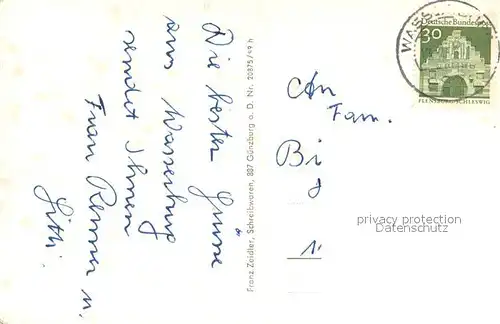 Die besten Grüsse
aus Wasserburg
sendet Ihnen
Frau Renner u.
Gitti.
Franz Zeidler, Schreibwaren, 887 Günzburg a. D. Nr. 20875/49 h
WASSERBURG
Deutsche Bundespost
30
FLENSBURG/SCHLESWIG
An
Fam.
Bi
8
1.
privacy protection
ansichtskartenversand.com